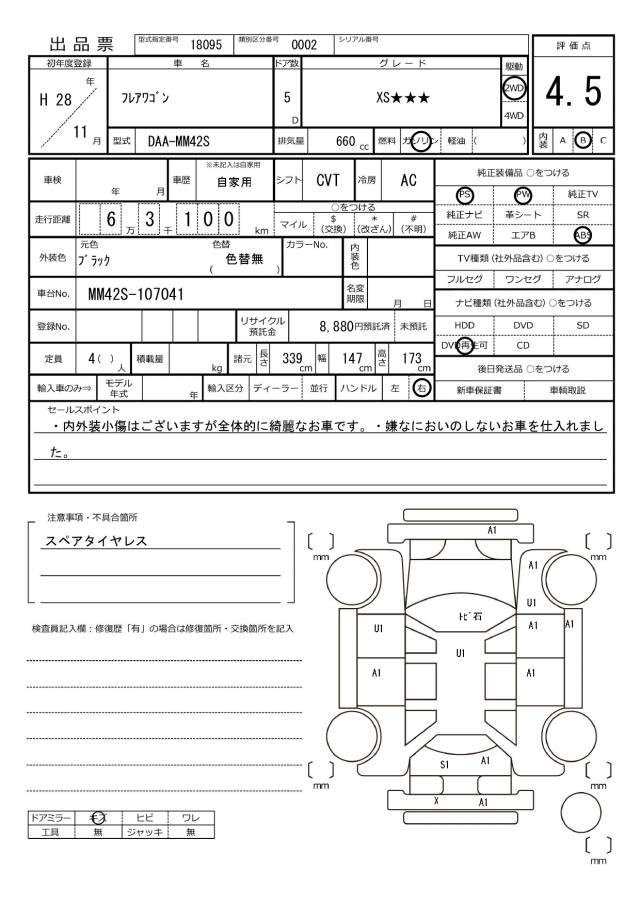 出品票 型式指定番号 18095 類別区分番号 0002 シリアル番号
初年度登録 車名 ドア数 グレード 駆動 評価点
H 28 年 11 月 フレアワゴン 5 D XS★★★ 2WD 4WD 4.5
型式 DAA-MM42S 排気量 660 cc 燃料 ガソリン 軽油 ( ) 内装 A B C
車検 年 月 車歴 ※未記入は自家用 自家用 シフト CVT 冷房 AC
純正装備品 ○をつける
PS PW 純正TV
純正ナビ 革シート SR
純正AW エアB ABS
走行距離 6 万 3 千 1 0 0 km ○をつける マイル $ (交換) * (改ざん) # (不明)
外装色 元色 ブラック 色替 ( 色替無 ) カラーNo. 内装色
TV種類 (社外品含む) ○をつける
フルセグ ワンセグ アナログ
車台No. MM42S-107041 名変期限 月 日
ナビ種類 (社外品含む) ○をつける
登録No. リサイクル預託金 8,880円預託済 未預託
HDD DVD SD
DVD再生可 CD
定員 4( ) 人 積載量 kg 諸元 長さ 339 cm 幅 147 cm 高さ 173 cm
後日発送品 ○をつける
輸入車のみ⇒ モデル年式 年 輸入区分 ディーラー 並行 ハンドル 左 右
新車保証書 車輌取説
セールスポイント
・内外装小傷はございますが全体的に綺麗なお車です。・嫌なにおいのしないお車を仕入れまし
た。
注意事項・不具合箇所
スペアタイヤレス
検査員記入欄：修復歴「有」の場合は修復箇所・交換箇所を記入
A1
mm mm
A1
U1
トビ石
U1 A1 A1
U1
A1 A1
S1 A1
mm mm
X A1
mm
ドアミラー キズ ヒビ ワレ
工具 無 ジャッキ 無